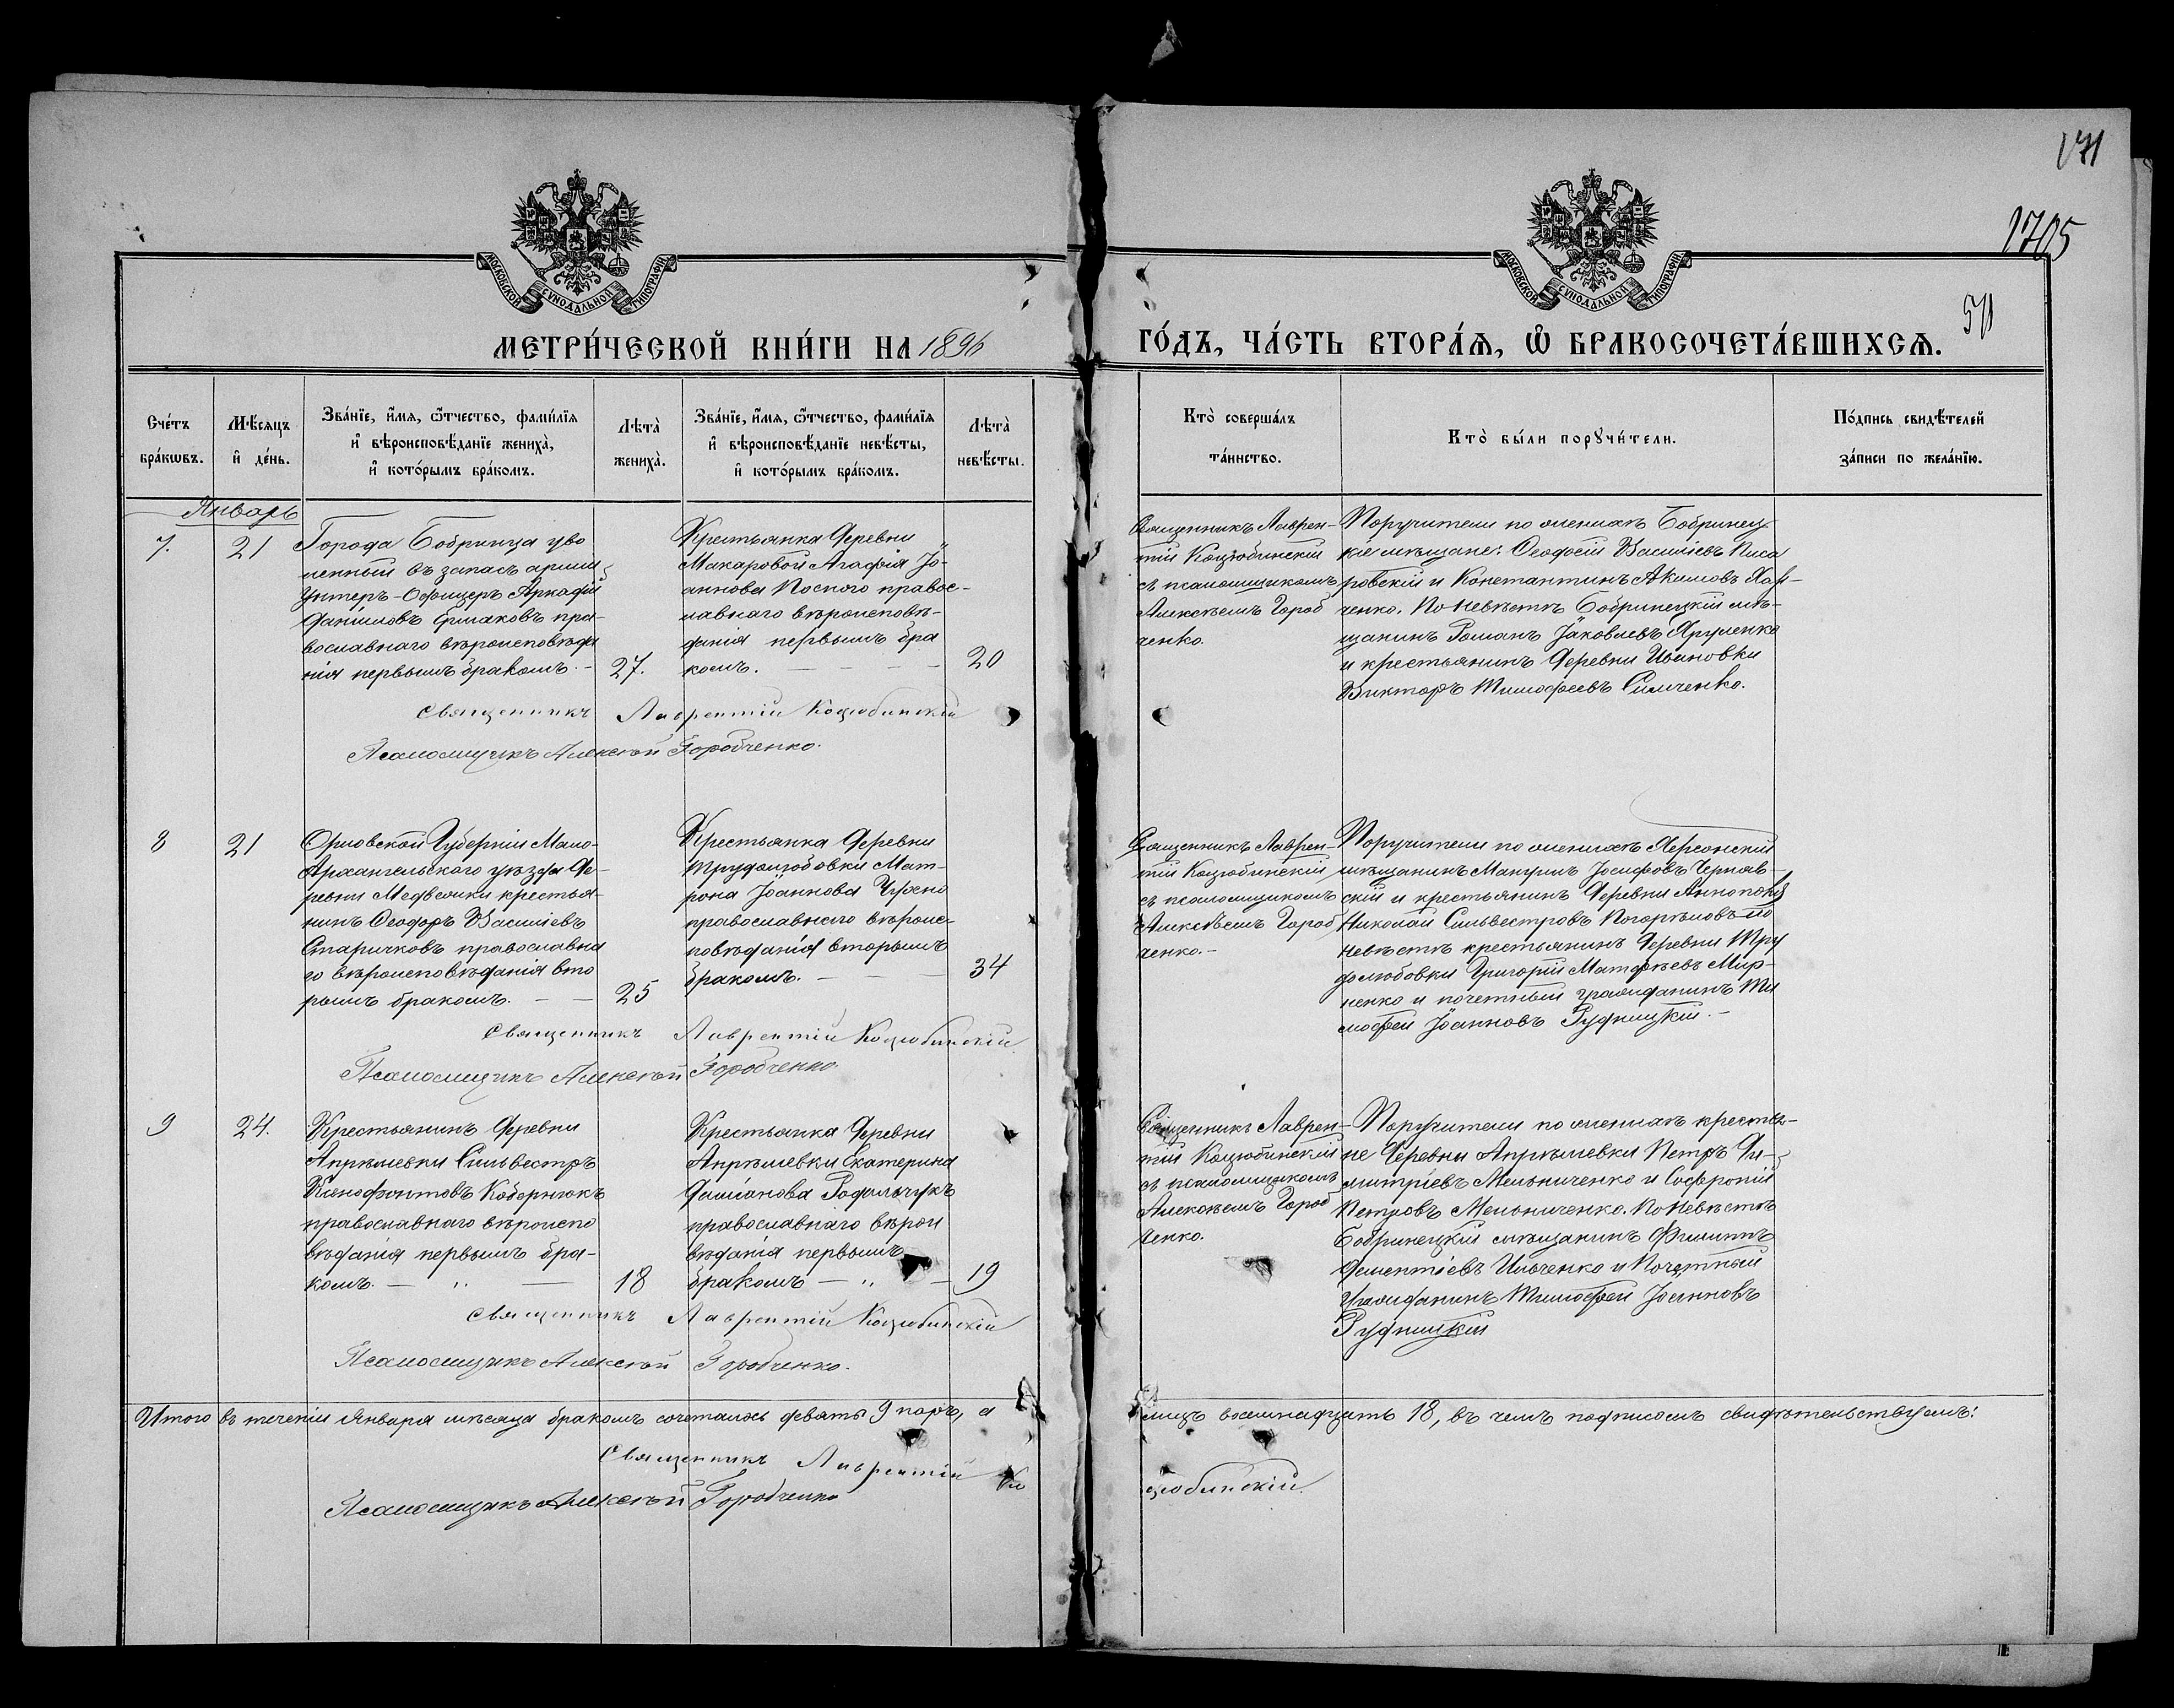 171
1705
50
МОСКОВСКОЙ СѴНОДАЛЬНОЙ ТИПОГРАФІИ
МОСКОВСКОЙ СѴНОДАЛЬНОЙ ТИПОГРАФІИ
МЕТРИ́ЧЕСКОЙ КНИ́ГИ НА 1896
ГО́ДЪ, ЧА́СТЬ ВТОРА́Ѧ, Ѽ БРАКОСОЧЕТА́ВШИХСѦ.
Сче́тъ бра́кѡвъ.
Мѣ́сяцъ и҆ де́нь.
Зва́нїе, и҆́мя, ѻ҆́тчество, фами́лїя и҆ вѣроисповѣ́данїе жениха̀, и҆ кото́рымъ бра́комъ.
Лѣта̀ жениха̀.
Зва́нїе, и҆́мя, ѻ҆́тчество, фами́лїя и҆ вѣроисповѣ́данїе невѣ́сты, и҆ кото́рымъ бра́комъ.
Лѣта̀ невѣ́сты.
Кто̀ соверша́лъ та́инство.
Кто̀ бы́ли порꙋчи́тели.
По́дпись свидѣ́телей за́писи по жела́нїю.
Январь
7.
21
Города Бобринца уво
ленный въ запасъ арміи
Унтеръ-Офицеръ Аркадій
Даніиловъ Ермаковъ пра-
вославнаго вѣроисповѣда
нія первымъ бракомъ. -
27.
Крестьянка Деревни
Макаровой Агафія Іо-
аннова Ноского правос-
лавнаго вѣроисповѣ-
данія первымъ бра
комъ.
20
Священникъ Лаврен-
тій Коцюбинскій
съ псаломщикомъ
Алексѣемъ Город
ченко.
Поручители по женихѣ Бобринец-
кіе мѣщане: Ѳеодосій Василіевъ Писа
ровскій и Константинъ Акимовъ Хар-
ченко. По Невѣстѣ Бобринецкій мѣ-
щанинъ Романъ Іаковлевъ Яруленко
и крестьянинъ Деревни Ивановки
Викторъ Тимофеевъ Симченко.
Священникъ Лаврентій Коцюбинскій
Псаломщикъ Алексѣй Городченко.
8
21
Орловской Губерніи Мало-
Архангельскаго уѣзда Де-
ревни Медвѣжки крестья-
нинъ Ѳеодоръ Василіевъ
Старичковъ православна
го вѣроисповѣданія вто
рымъ бракомъ.
25
Крестьянка Деревни
Трудолюбовки Мат-
рона Іоаннова Чухно
православнаго вѣроис-
повѣданія вторымъ
бракомъ.
34
Священникъ Лаврен-
тій Коцюбинскій
съ псаломщикомъ
Алексѣемъ Город
ченко. -
Поручители по женихѣ Херсонскій
мѣщанинъ Мануилъ Іосифовъ Черняв-
скій и крестьянинъ Деревни Аннополя
Николай Сильвестровъ Погорѣловъ по
невѣстѣ крестьянинъ Деревни Тру
долюбовки Григорій Матфѣевъ Мир-
ненко и почетный гражданинъ Ти
мофей Іоанновъ Рудницкій. -
Священникъ Лаврентій Коцюбинскій
Псаломщикъ Алексѣй Городченко.
9
24.
Крестьянинъ Деревни
Апрѣлевки Сильвестръ
Ксенофонтовъ Коборнюкъ
православнаго вѣроиспо
вѣданія первымъ бра-
комъ.
18
Крестьянка Деревни
Апрѣлевки Екатерина
Даміанова Родильчукъ
православнаго вѣрои
вѣданія первымъ
бракомъ
19
Священникъ Лаврен-
тій Коцюбинскій
съ псаломщикомъ
Алексѣемъ Город
ченко.
Поручители по женихѣ крестья-
не Деревни Апрѣлевки Петръ Ди-
митріевъ Мельниченко и Софроній
Петровъ Мельниченко. По Невѣстѣ
Бобринецкій мѣщанинъ Филиппъ
Дементіевъ Ильченко и Почетный
Гражданинъ Тимофей Іоанновъ
Рудницкій
Священникъ Лаврентій Коцюбинскій
Псаломщикъ Алексѣй Городченко.
Итого въ теченіи Января мѣсяца бракомъ сочеталось девять 9 паръ, а
лицъ восемнадцать 18, въ чемъ подписомъ свидѣтельствуемъ:
Священникъ Лаврентій Ко
цюбинскій.
Псаломщикъ Алексѣй Городченко